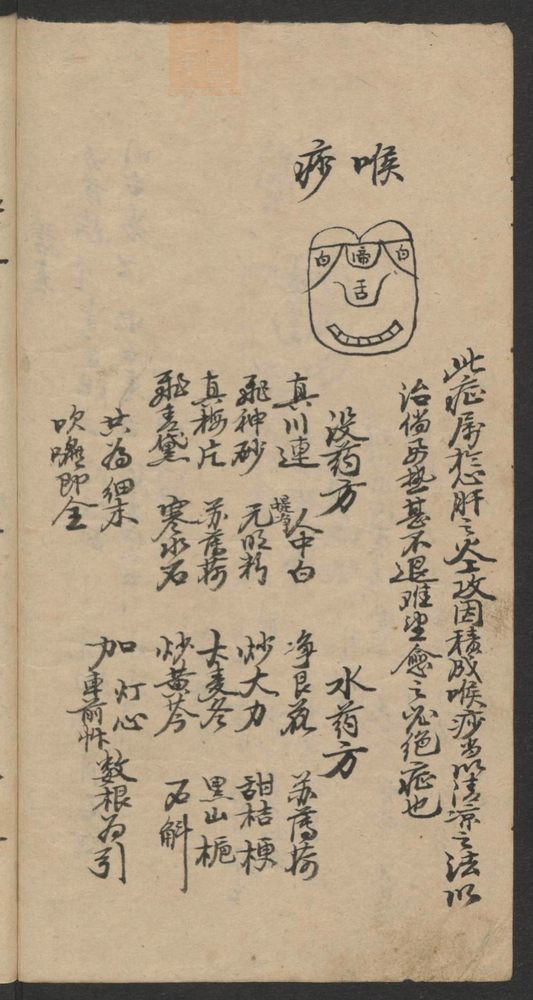 喉痧
白 啼 白
舌
此症属于心肝之火上攻因積成喉痧当以清凉之法以
治倘 热甚不退难望愈之 绝症也
没药方
真川連 人中白
飛神砂 元明粉
真梅片 苏薄荷
飛青黛 寒水石
共为细末
吹喉即全
水药方
净艮花 苏薄荷
炒大力 甜桔梗
大麦冬 黑山梔
炒黄芩 石斛
加 灯心 数根为引
車前草